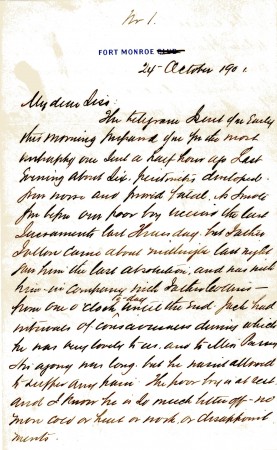 No 1.
FORT MONROE CLUB
24 October 1901.
My dear Sis:
The telegram I sent you early
this morning prepared you for the most
one sent a half hour ago. Last
evening about six. peritonitis developed
from and proved fatal. As I wrote
you before our poor boy received the last
Sacraments last Thursday, but Father
came about midnight last night
gave him the last absolution, and was with
him in company with
from one o'clock to-day until the end. Jack had
intervals of consciousness during which
he was very lovely to us. and to Ellen
His agony was long. but he wasn't allowed
to suffer any pain. The poor boy is at rest
and I know he is so much better off - no
more cold or heat or work, or disappoint
ments.